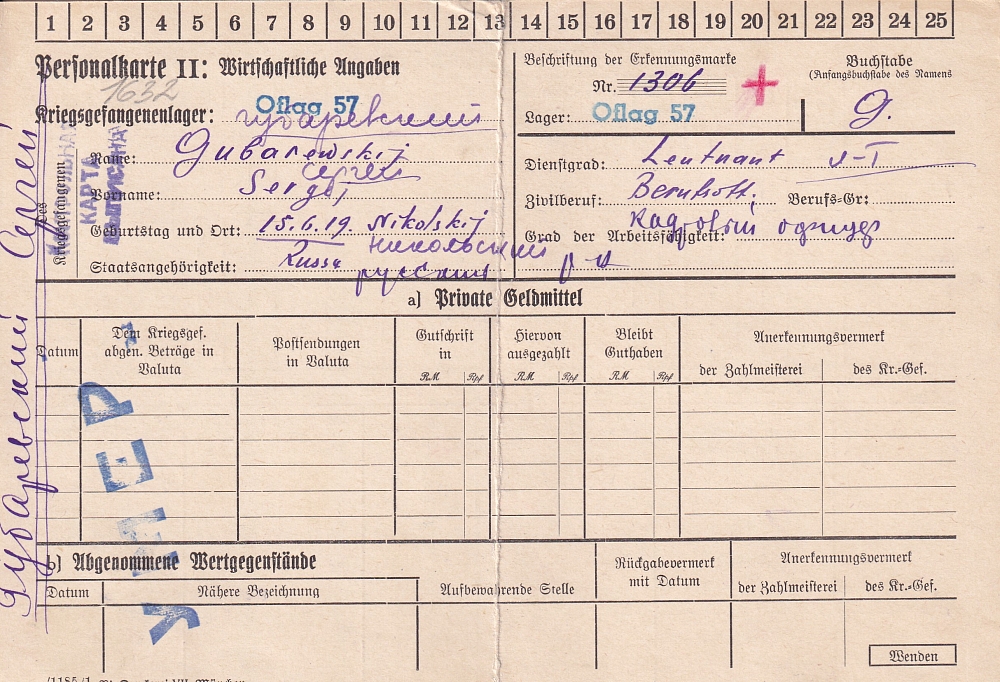 1 2 3 4 5 6 7 8 9 10 11 12 13 14 15 16 17 18 19 20 21 22 23 24 25
Personalkarte II: Wirtschaftliche Angaben
1632
Kriegsgefangenenlager: Oflag 57
Губаревский
Des Kriegsgefangenen
КАРТА
Name: Gubarewskij
Сергей
Vorname: Sergej
Geburtstag und Ort: 15.6.19. Nikolskij
Никольский р-н
Staatsangehörigkeit: Russe
русский
Beschriftung der Erkennungsmarke
Nr. 1306
Lager: Oflag 57
Buchstabe
(Anfangsbuchstabe des Namens
G.
Dienstgrad: Leutnant л-т
Zivilberuf: Berufsoff. Berufs-Gr:
Кадровый офицер
Grad der Arbeitsfähigkeit:
Губаревский Сергей
a) Private Geldmittel
Datum
Dem Kriegsgef. abgen. Beträge in Valuta
Postsendungen in Valuta
Gutschrift in
RM Rpf
Hiervon ausgezahlt
RM Rpf
Bleibt Guthaben
RM Rpf
Anerkennungsvermerk
der Zahlmeisterei
des Kr.=Gef.
УМЕР
b) Abgenommene Wertgegenstände
Datum
Nähere Bezeichnung
Aufbewahrende Stelle
Rückgabevermerk mit Datum
Anerkennungsvermerk
der Zahlmeisterei
des Kr.=Gef.
Wenden